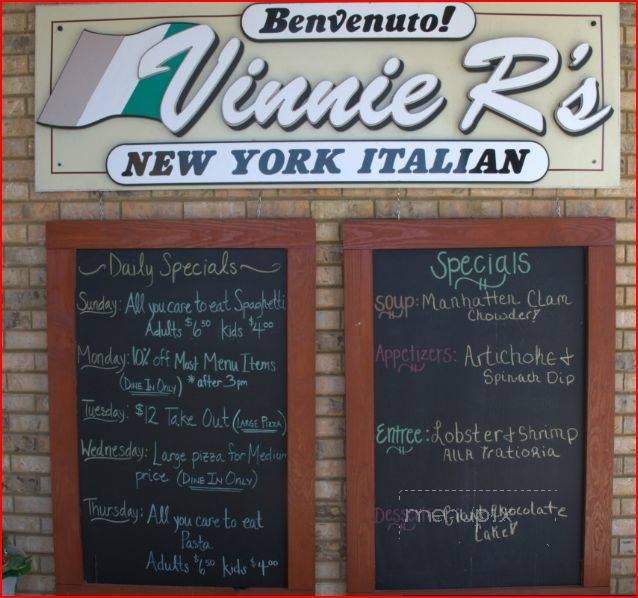 Benvenuto!
Vinnie R's
NEW YORK ITALIAN
Daily Specials
Sunday: All you care to eat Spaghetti
Adults $6.50 kids $4.00
Monday: 10% off Most Menu Items
(DINE IN ONLY) *after 3pm
Tuesday: $12 Take Out (LARGE PIZZA)
Wednesday: Large pizza for Medium
price (DINE IN ONLY)
Thursday: All you care to eat
Pasta
Adults $6.50 kids $4.00
Specials
Soup: Manhatten Clam
Chowder!
Appetizers: Artichoke &
Spinach Dip
Entree: Lobster & Shrimp
Alla Trattoria
Chocolate
Cake